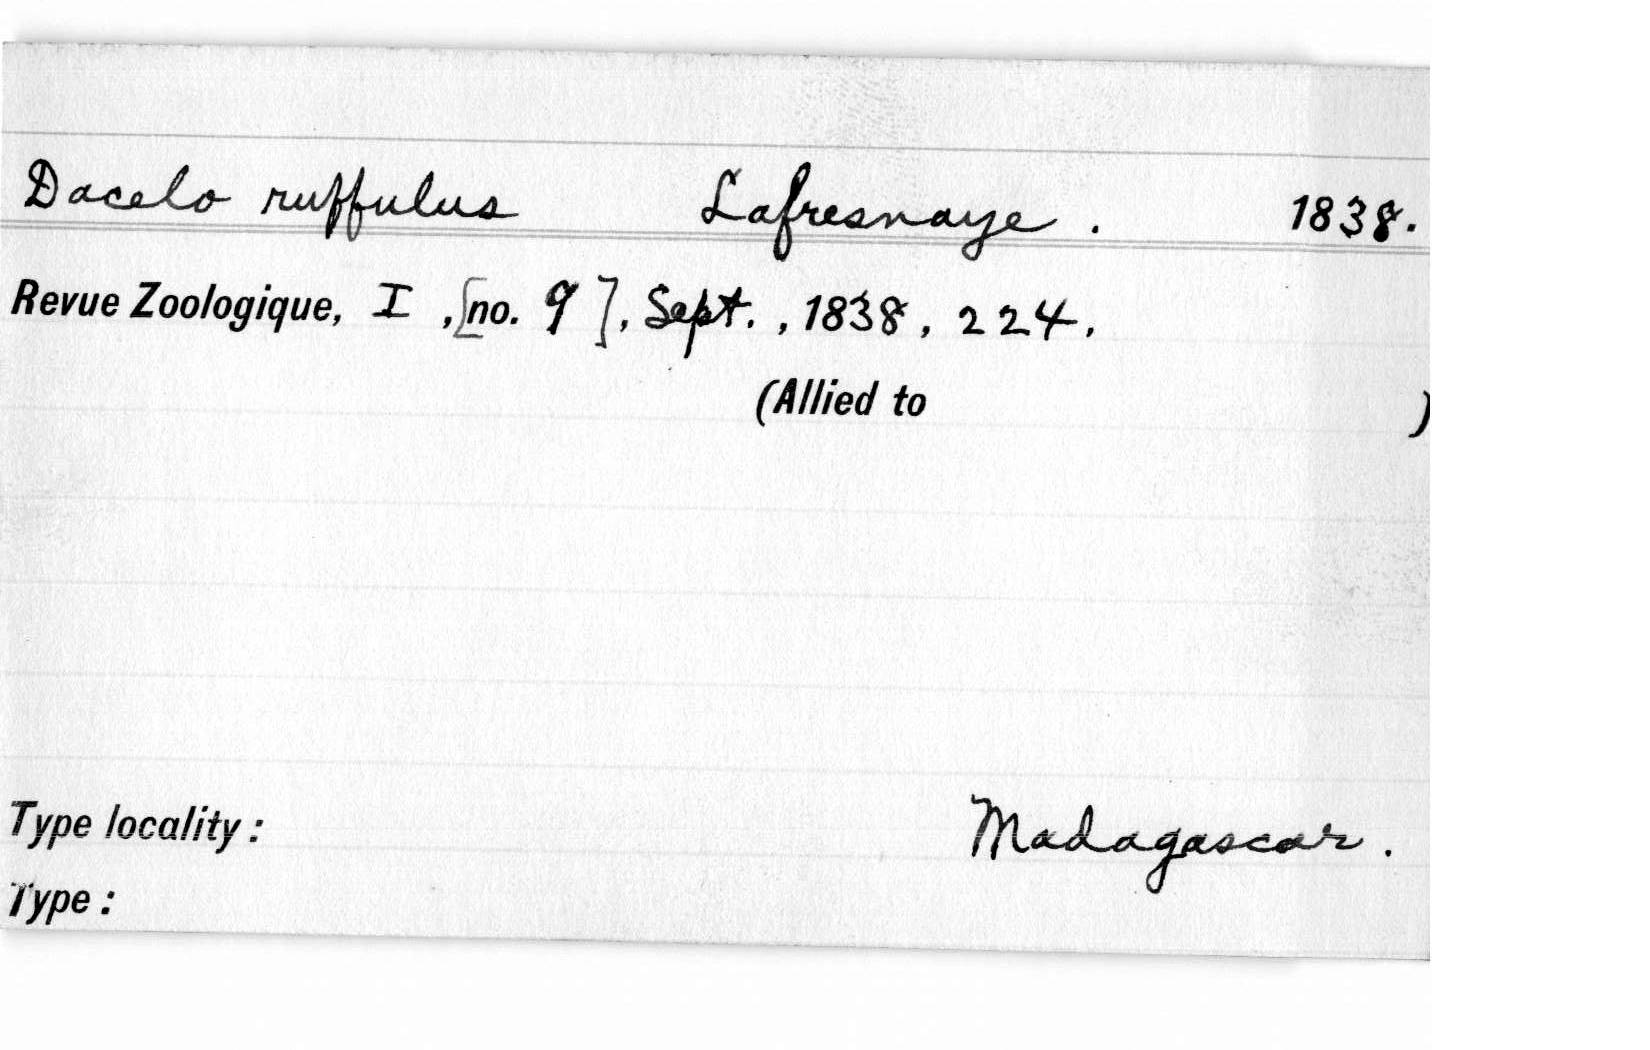 Dacelo ruffulus Lafresnaye. 1838.
Revue Zoologique, I, [no. 9], Sept., 1838, 224.
(Allied to )
Type locality: Madagascar.
Type: